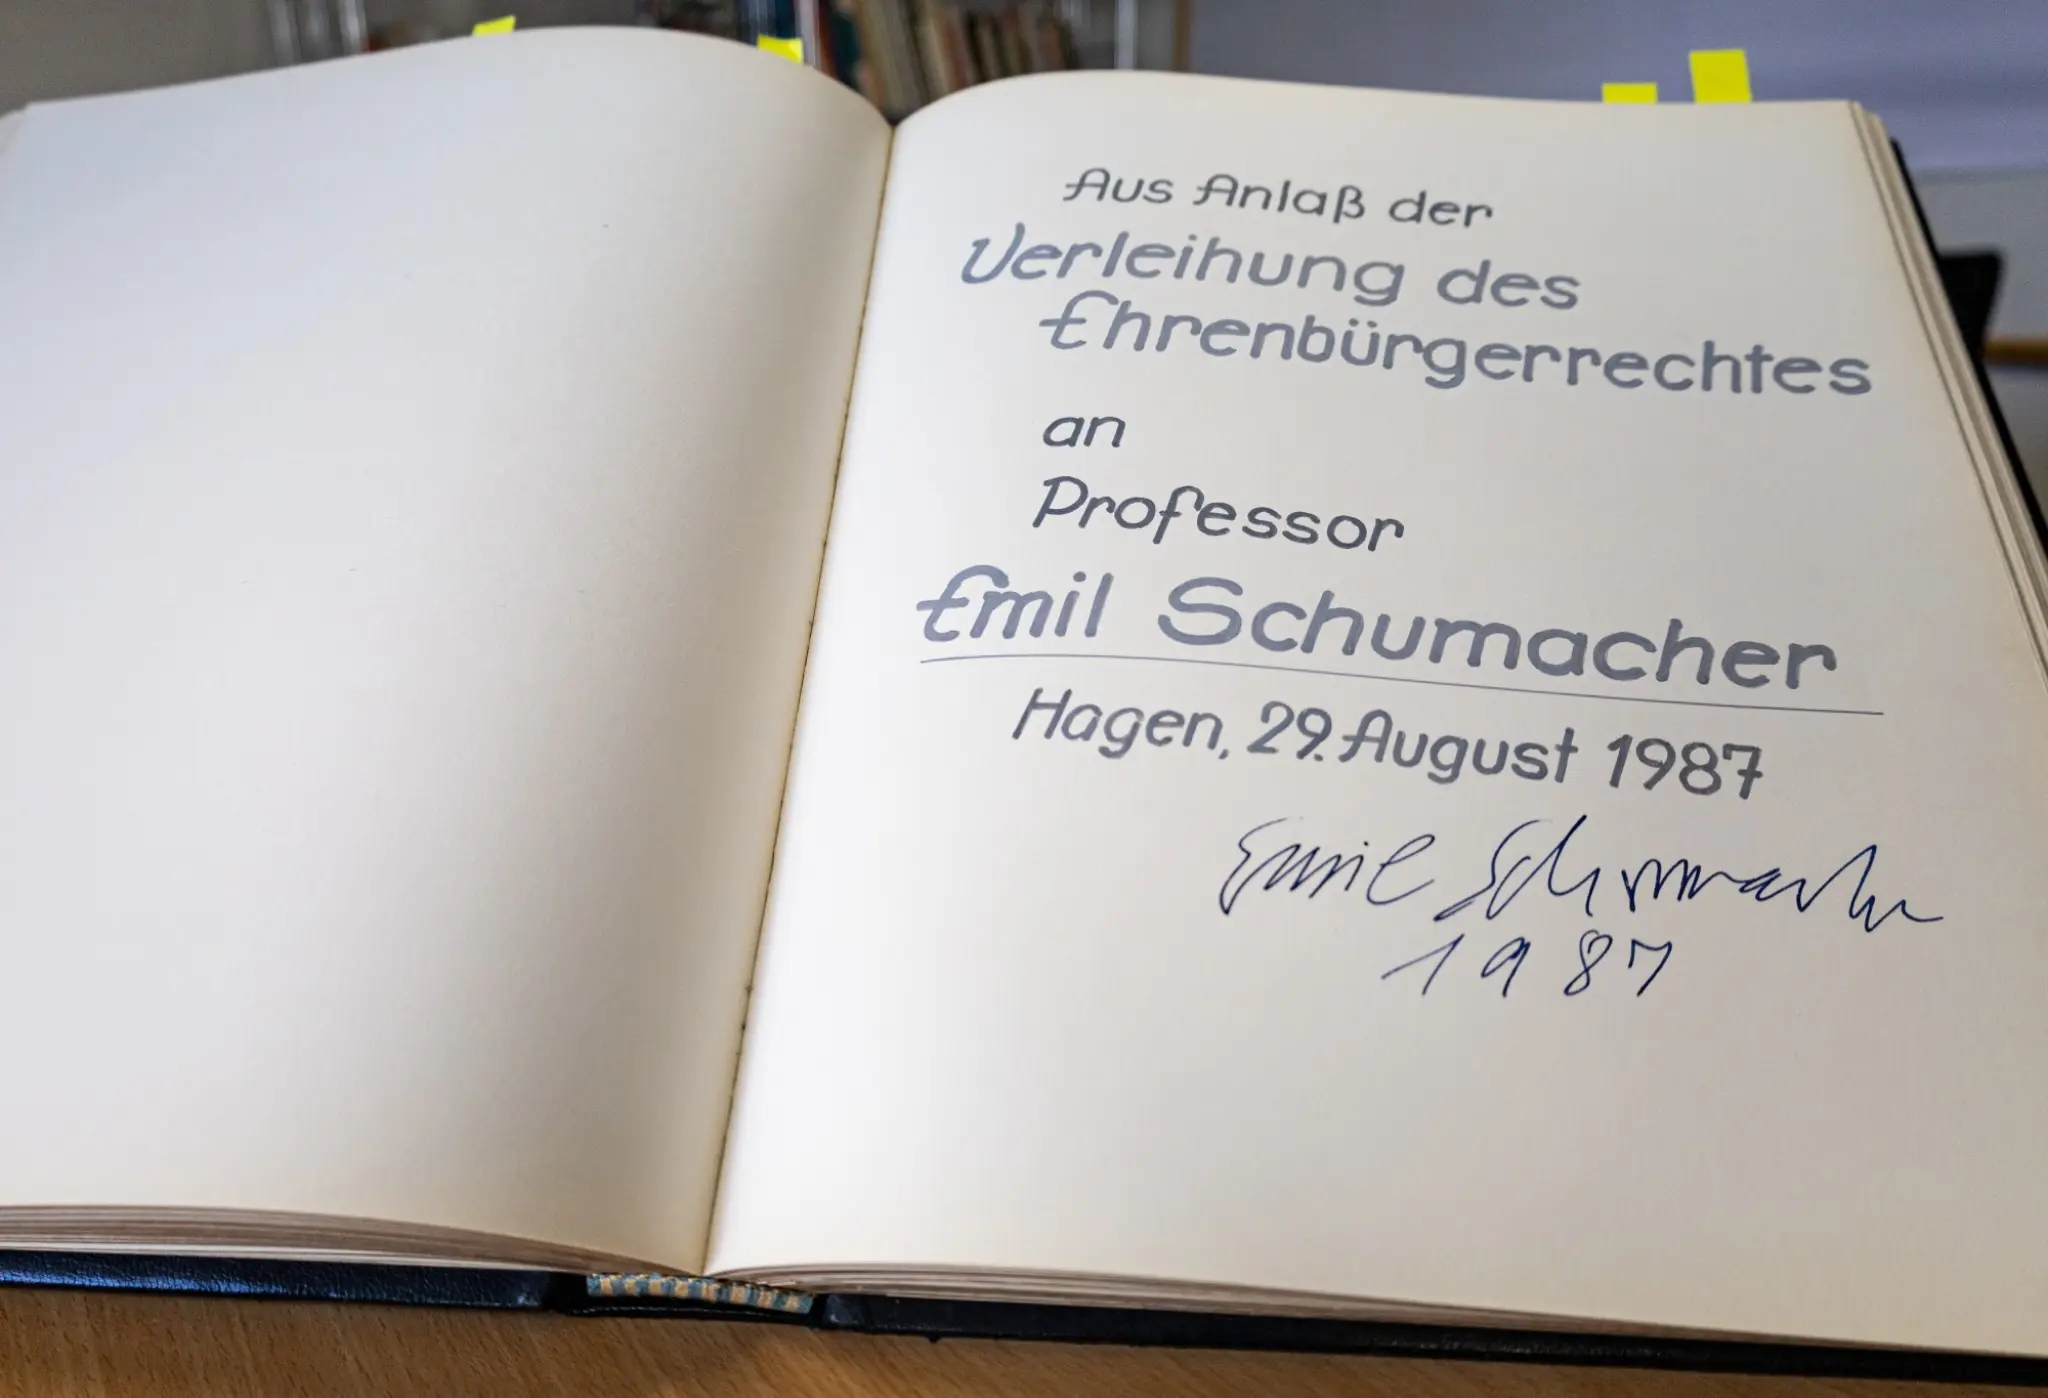 Aus Anlaß der
Verleihung des
Ehrenbürgerrechtes
an
Professor
Emil Schumacher
Hagen, 29. August 1987
Emil Schumacher
1987